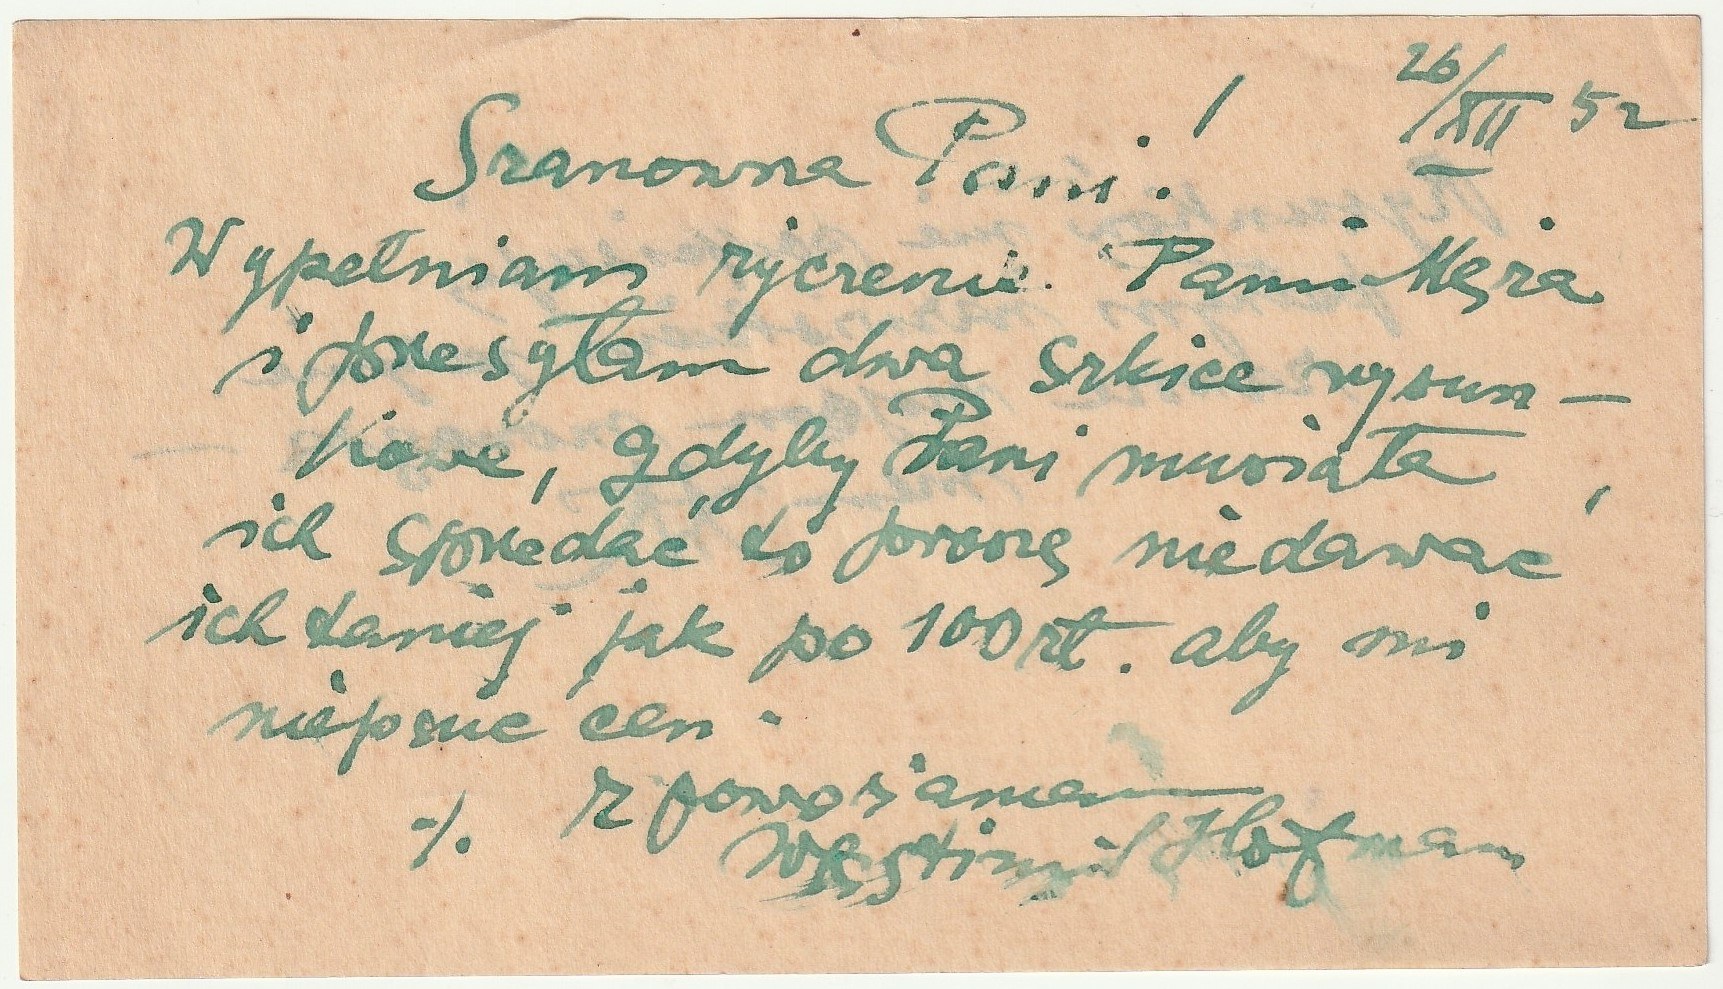 26/XII 52
Szanowna Pani!
Wypełniam życzenie Pani Męża
i przesyłam dwa szkice rysun-
kowe, gdyby Pani musiała
ich sprzedać to proszę niedawać
ich taniej jak po 100 zł. aby mi
niepsuć cen.
Z poważaniem
./. Wlastimil Hofman